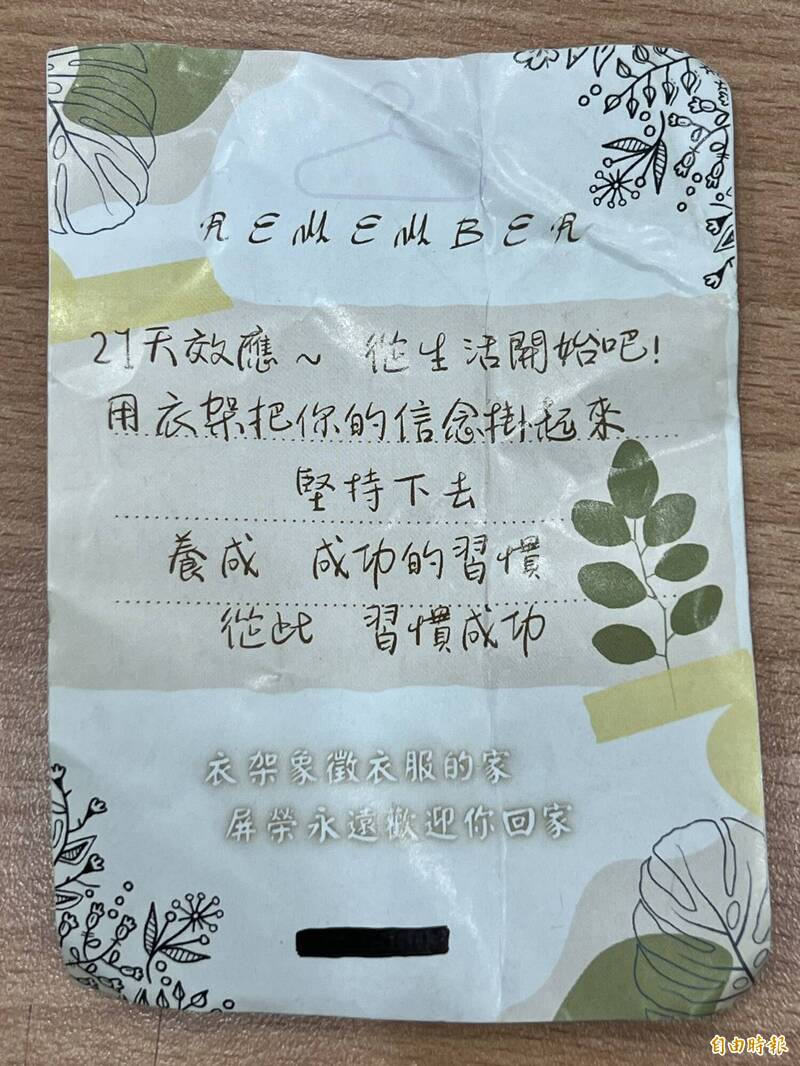 REMEMBER
21天效應～ 從生活開始吧!
用衣架把你的信念掛起來
堅持下去
養成 成功的習慣
從此 習慣成功
衣架象徵衣服的家
屏榮永遠歡迎你回家
自由時報